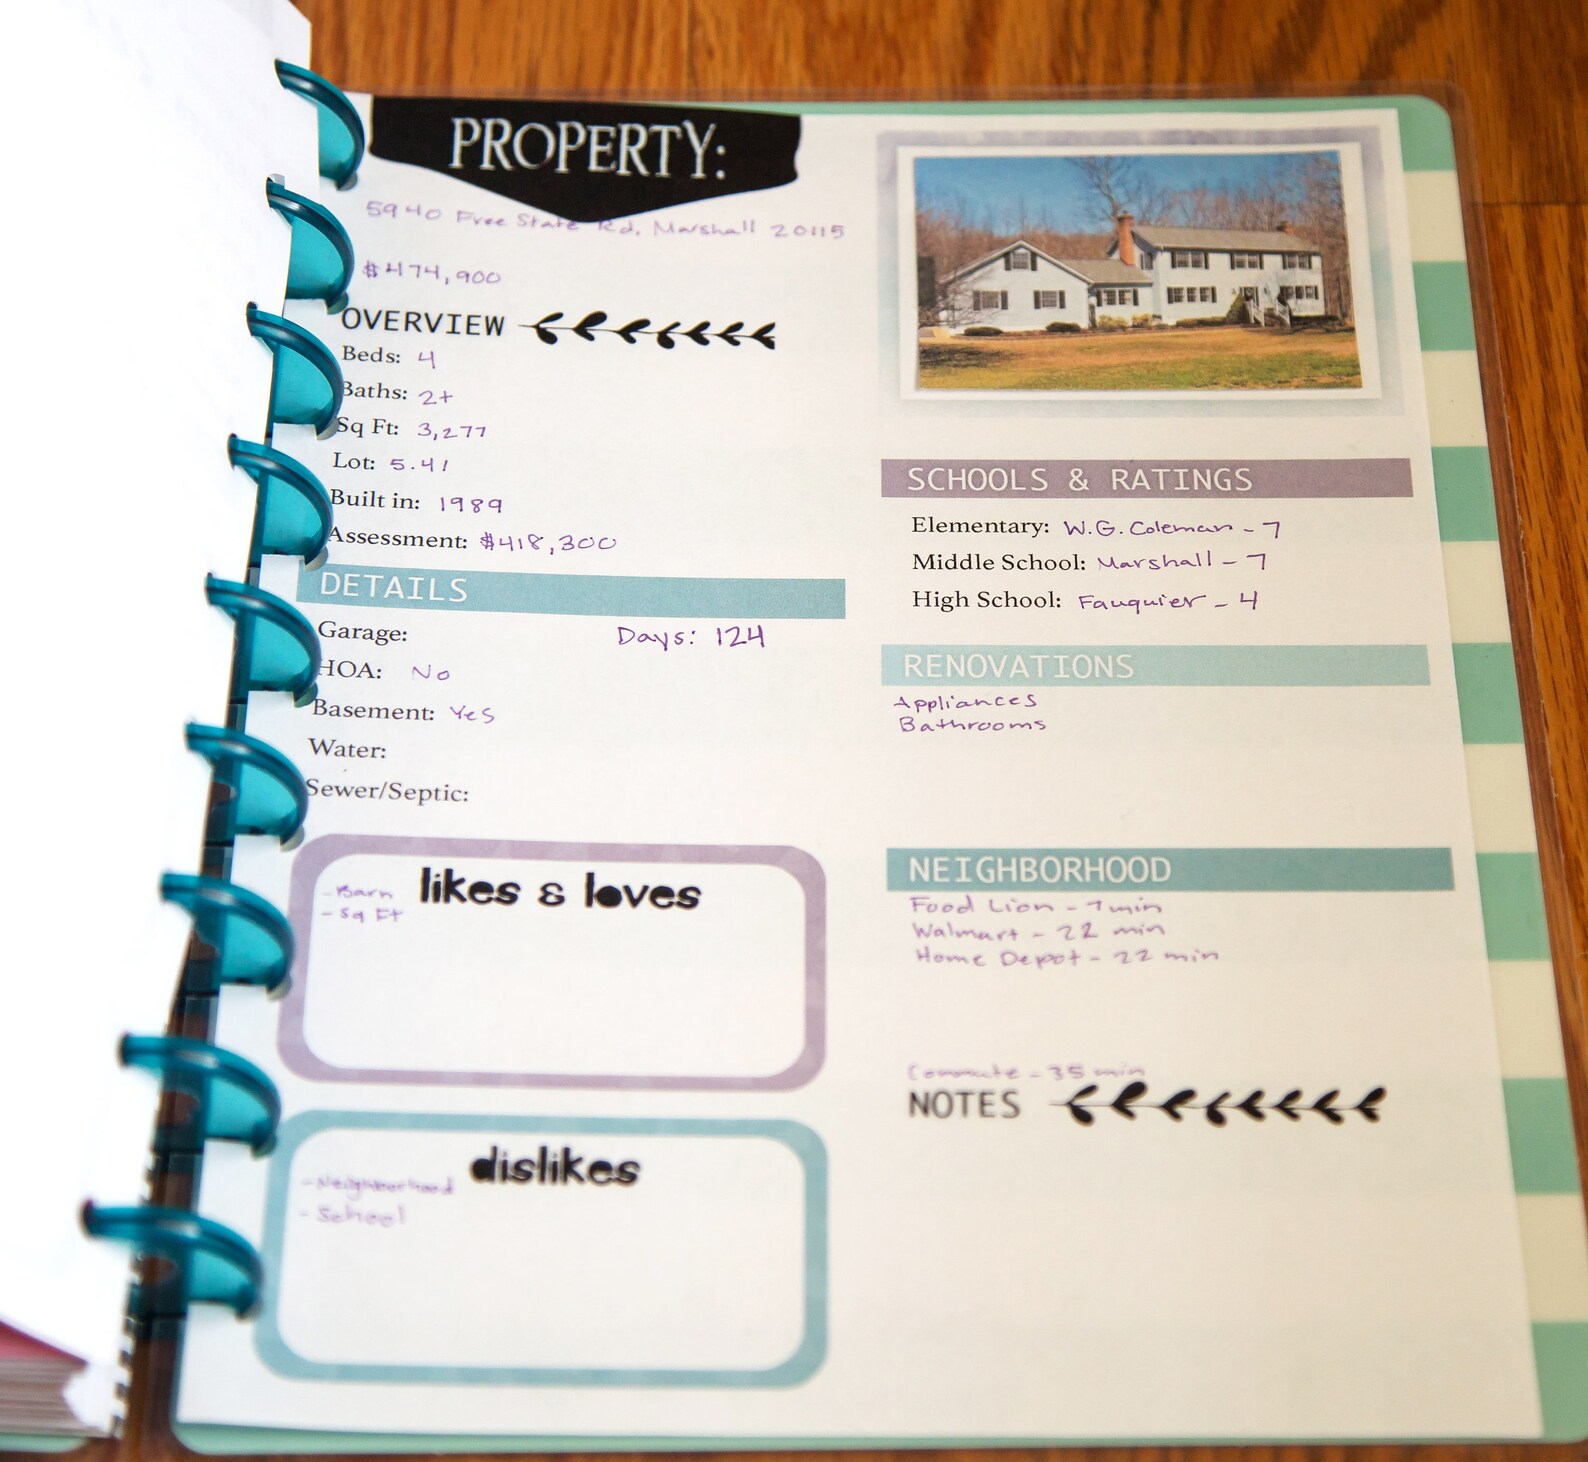 PROPERTY:
5940 Free State Rd, Marshall 20115
$474,900
OVERVIEW
Beds: 4
Baths: 2+
Sq Ft: 3,277
Lot: 5.41
Built in: 1989
Assessment: $418,300
DETAILS
Garage: Days: 124
HOA: No
Basement: Yes
Water:
Sewer/Septic:
likes & loves
- Barn
- Sq Ft
dislikes
- Neighborhood
- School
SCHOOLS & RATINGS
Elementary: W.G. Coleman - 7
Middle School: Marshall - 7
High School: Fauquier - 4
RENOVATIONS
Appliances
Bathrooms
NEIGHBORHOOD
Food Lion - 7 min
Walmart - 22 min
Home Depot - 22 min
Commute - 35 min
NOTES